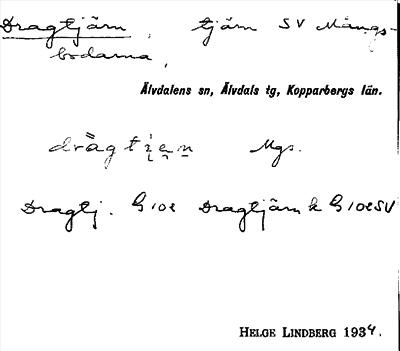 Dragtjärn, tjärn SV Mångs-
bodarna,
Älvdalens sn, Älvdals tg, Kopparbergs län.
drag̀tien Mgs.
Dragtj. G 102 Dragtjärn k G 102 SV
HELGE LINDBERG 1934.